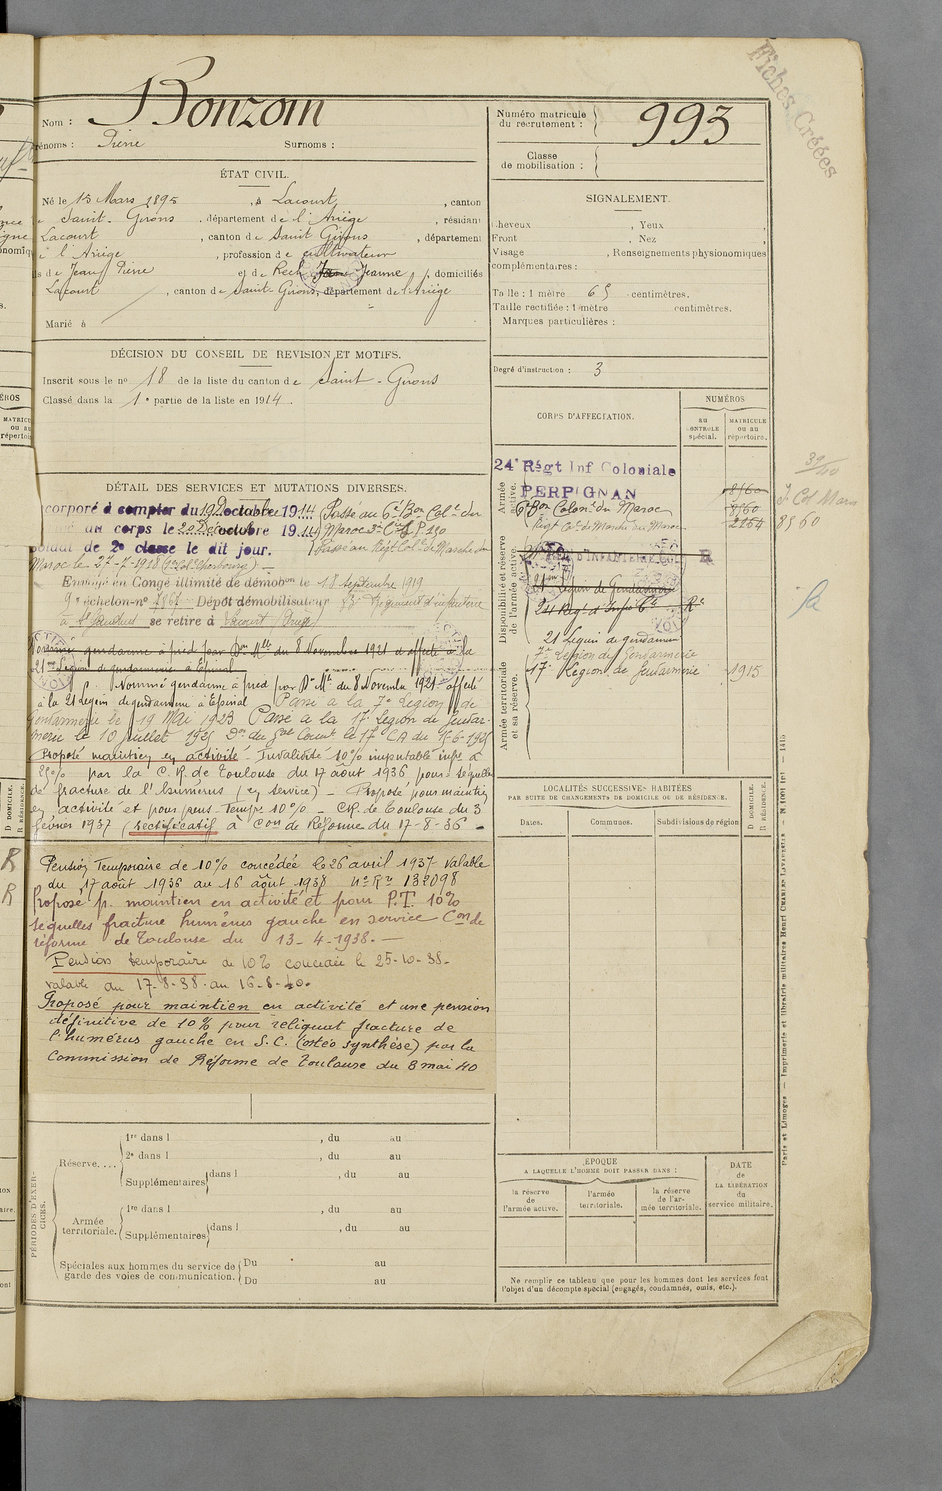 Fiches Créées
Nom : Bonzom
Prénoms : Pierre Surnoms :
Numéro matricule du recrutement : 993
Classe de mobilisation :
ÉTAT CIVIL.
Né le 15 Mars 1895, à Lacourt, canton
de Saint-Girons, département de l'Ariège, résidant
Lacourt, canton de Saint Girons, département
de l'Ariège, profession de cultivateur
de Jean Pierre et de Rech Jeanne, domiciliés
Lacourt, canton de Saint-Girons, département de l'Ariège
Marié à
SIGNALEMENT.
Cheveux , Yeux
Front , Nez
Visage , Renseignements physionomiques
complémentaires :
Taille : 1 mètre 65 centimètres.
Taille rectifiée : 1 mètre centimètres.
Marques particulières :
Degré d'instruction : 3
DÉCISION DU CONSEIL DE REVISION ET MOTIFS.
Inscrit sous le n° 18 de la liste du canton de Saint-Girons
Classé dans la 1e partie de la liste en 1914.
DÉTAIL DES SERVICES ET MUTATIONS DIVERSES.
corporé à compter du 19 Décembre 1914 Passé au 6e Bon Colal du
au corps le 20 Décembre 1914 Maroc
soldat de 2e classe le dit jour. Passé au Régt Colal de Marche du
Maroc le 27-7-1918
Envoyé en Congé illimité de démobon le 18 Septembre 1919
9e échelon-n° Dépôt démobilisateur Régiment d'infanterie
se retire à Lacourt
Nommé gendarme à pied par Don Mlle du 8 Novembre 1921 et affecté à la
21me Légion de gendarmerie à Epinal
Nommé gendarme à pied par Don Mle du 8 Novembre 1921 affecté
à la 21 Légion de gendarmerie à Epinal Passé à la 7e Légion de
Gendarmerie le 19 Mai 1923 Passé à la 17e Légion de Gendar-
merie le 10 juillet 1925
Proposé maintien en activité - Invalidité 10% imputable infr à
25% par la C.R. de Toulouse du 17 août 1936 pour séquelles
de fracture de l'humérus (en service) - Proposé pour maintien
en activité et pour pens. Temp. 10% - C.R. de Toulouse du 3
février 1937 (rectificatif à Con de Réforme du 17-8-36 -
Pension Temporaire de 10% concédée le 26 avril 1937 valable
du 17 août 1936 au 16 août 1938 No Rve 132098
Proposé p. maintien en activité et pour P.T. 10%
séquelles fracture humérus gauche en service Con de
réforme de Toulouse du 13-4-1938. -
Pension temporaire de 10% concédée le 25-10-38-
valable du 17-8-38 au 16-8-40-
Proposé pour maintien en activité et une pension
définitive de 10% pour reliquat fracture de
l'humérus gauche en S.C. (ostéo synthèse) par la
Commission de Réforme de Toulouse du 8 mai 40
CORPS D'AFFECTATION.
NUMÉROS
au CONTROLE spécial.
MATRICULE ou au répertoire.
Armée active.
24e Régt Inf Coloniale
PERPIGNAN 8560
6e Bon Colonal du Maroc 8560
Régt Cal de Marche du Maroc 2264 8560
Disponibilité et réserve de l'armée active.
21 Légion de Gendarmerie
24 Régt d'Infie Cle Re
21 Légion de gendarmerie
7e Légion de Gendarmerie
17e Légion de Gendarmerie 1915
Armée territoriale et sa réserve.
LOCALITÉS SUCCESSIVES HABITÉES
PAR SUITE DE CHANGEMENTS DE DOMICILE OU DE RÉSIDENCE.
Dates. Communes. Subdivisions de région
D DOMICILE.
R RÉSIDENCE.
PÉRIODES D'EXERCICES.
Réserve.... 1re dans l , du au
2e dans l , du au
Supplémentaires dans l , du au
Armée territoriale. 1re dans l , du au
Supplémentaires dans l , du au
Spéciales aux hommes du service de garde des voies de communication. Du au
Du au
ÉPOQUE
A LAQUELLE L'HOMME DOIT PASSER DANS :
la réserve de l'armée active.
l'armée territoriale.
la réserve de l'armée territoriale.
DATE de LA LIBÉRATION du service militaire.
Ne remplir ce tableau que pour les hommes dont les services font
l'objet d'un décompte spécial (engagés, condamnés, omis, etc.).
Paris et Limoges. — Imprimerie et librairie militaires Henri CHARLES-LAVAUZELLE